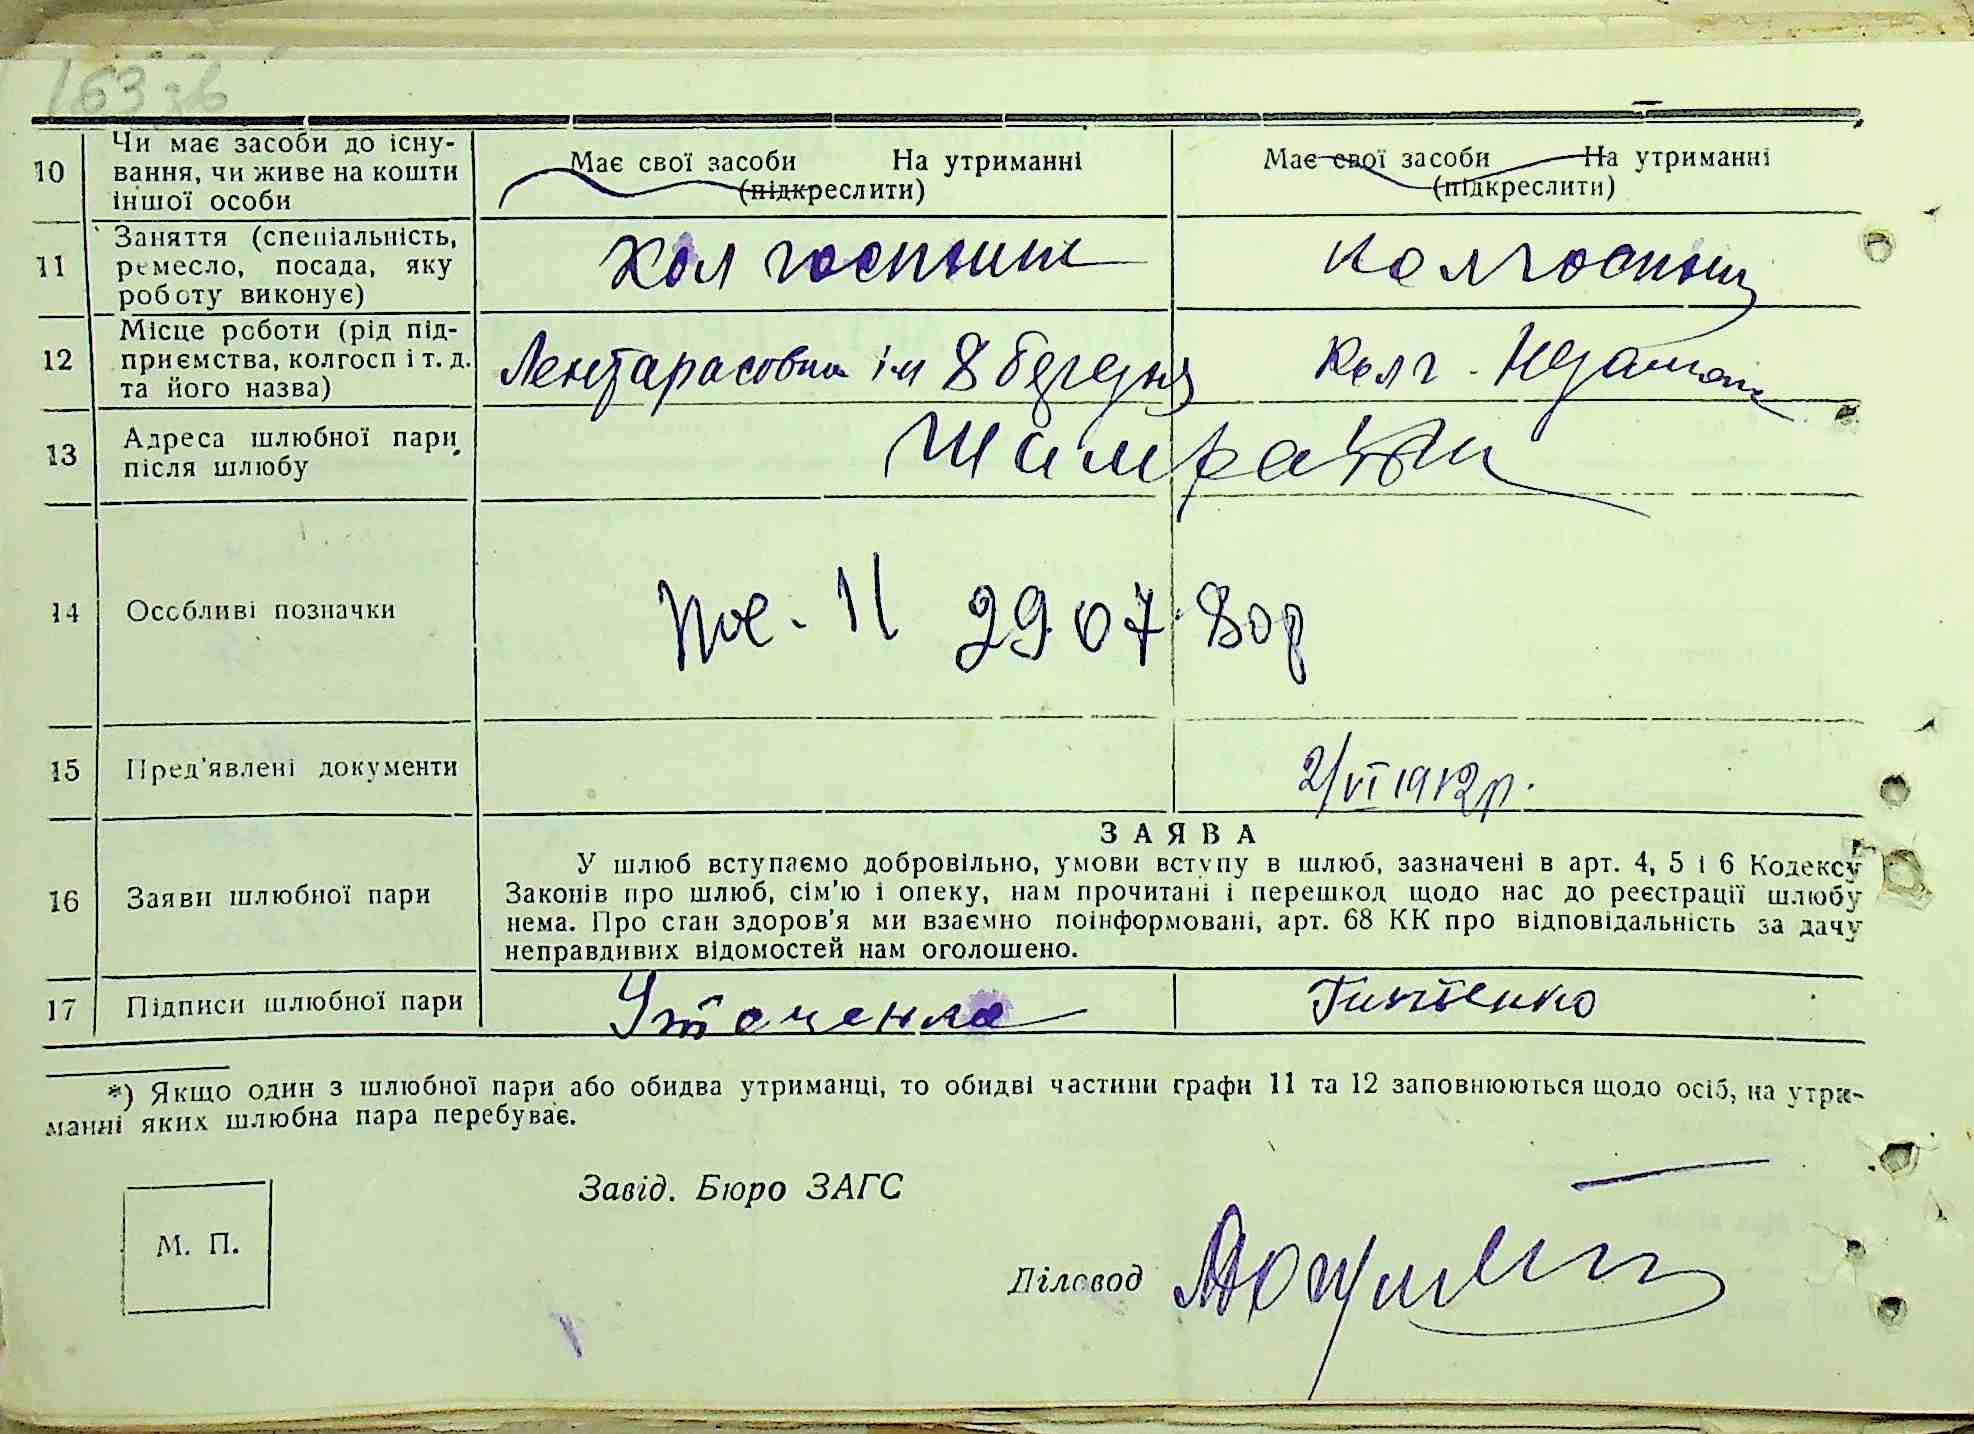 163 зв
10 Чи має засоби до існу-
вання, чи живе на кошти
іншої особи
Має свої засоби На утриманні
(підкреслити)
Має свої засоби На утриманні
(підкреслити)
11 Заняття (спеціальність,
ремесло, посада, яку
роботу виконує)
Колгоспник
колгоспниц
12 Місце роботи (рід під-
приємства, колгосп і т. д.
та його назва)
ім 8 березня
Колг.
13 Адреса шлюбної пари
після шлюбу
14 Особливі позначки
II 2907 80р
15 Пред'явлені документи
2/VI 1912р.
16 Заяви шлюбної пари
ЗАЯВА
У шлюб вступаємо добровільно, умови вступу в шлюб, зазначені в арт. 4, 5 і 6 Кодексу
Законів про шлюб, сім'ю і опеку, нам прочитані і перешкод щодо нас до реєстрації шлюбу
нема. Про стан здоров'я ми взаємно поінформовані, арт. 68 КК про відповідальність за дачу
неправдивих відомостей нам оголошено.
17 Підписи шлюбної пари
*) Якщо один з шлюбної пари або обидва утриманці, то обидві частини графи 11 та 12 заповнюються щодо осіб, на утри-
манні яких шлюбна пара перебуває.
Завід. Бюро ЗАГС
М. П.
Діловод